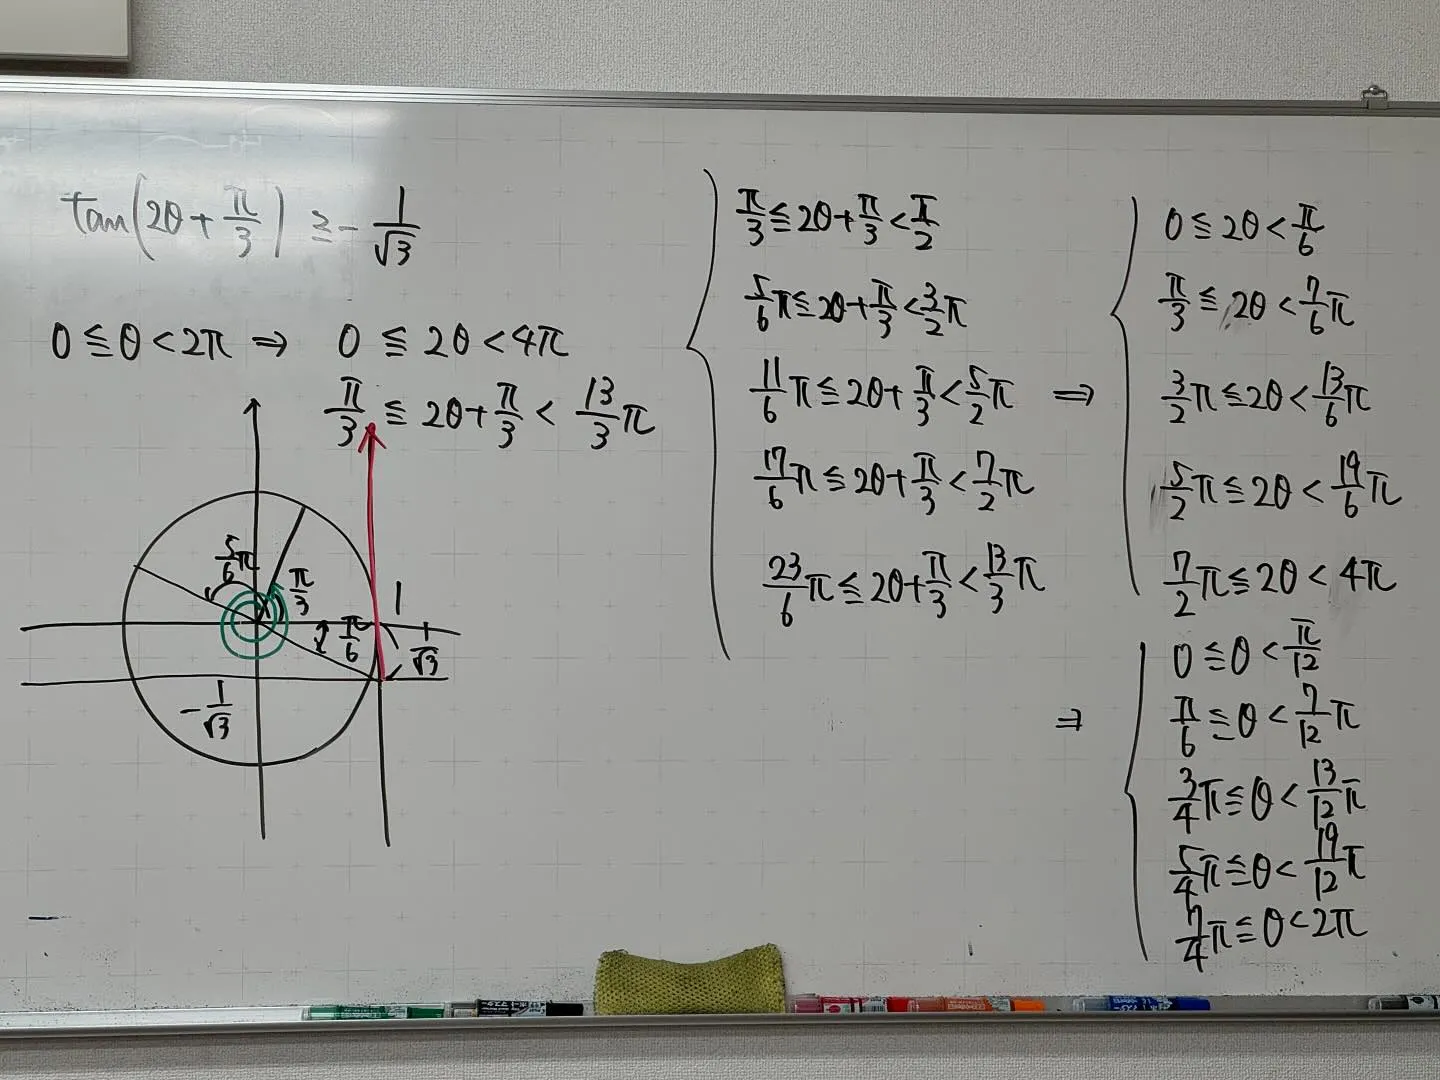 tan(2θ + π/3) ≧ - 1/√3
0 ≦ θ < 2π ⇒ 0 ≦ 2θ < 4π
π/3 ≦ 2θ + π/3 < 13/3 π
5/6 π
π/3
π/6
1
1/√3
- 1/√3
π/3 ≦ 2θ + π/3 < π/2
5/6 π ≦ 2θ + π/3 < 3/2 π
11/6 π ≦ 2θ + π/3 < 5/2 π
17/6 π ≦ 2θ + π/3 < 7/2 π
23/6 π ≦ 2θ + π/3 < 13/3 π
⇒
0 ≦ 2θ < π/6
π/3 ≦ 2θ < 7/6 π
3/2 π ≦ 2θ < 13/6 π
5/2 π ≦ 2θ < 19/6 π
7/2 π ≦ 2θ < 4π
⇒
0 ≦ θ < π/12
π/6 ≦ θ < 7/12 π
3/4 π ≦ θ < 13/12 π
5/4 π ≦ θ < 19/12 π
7/4 π ≦ θ < 2π